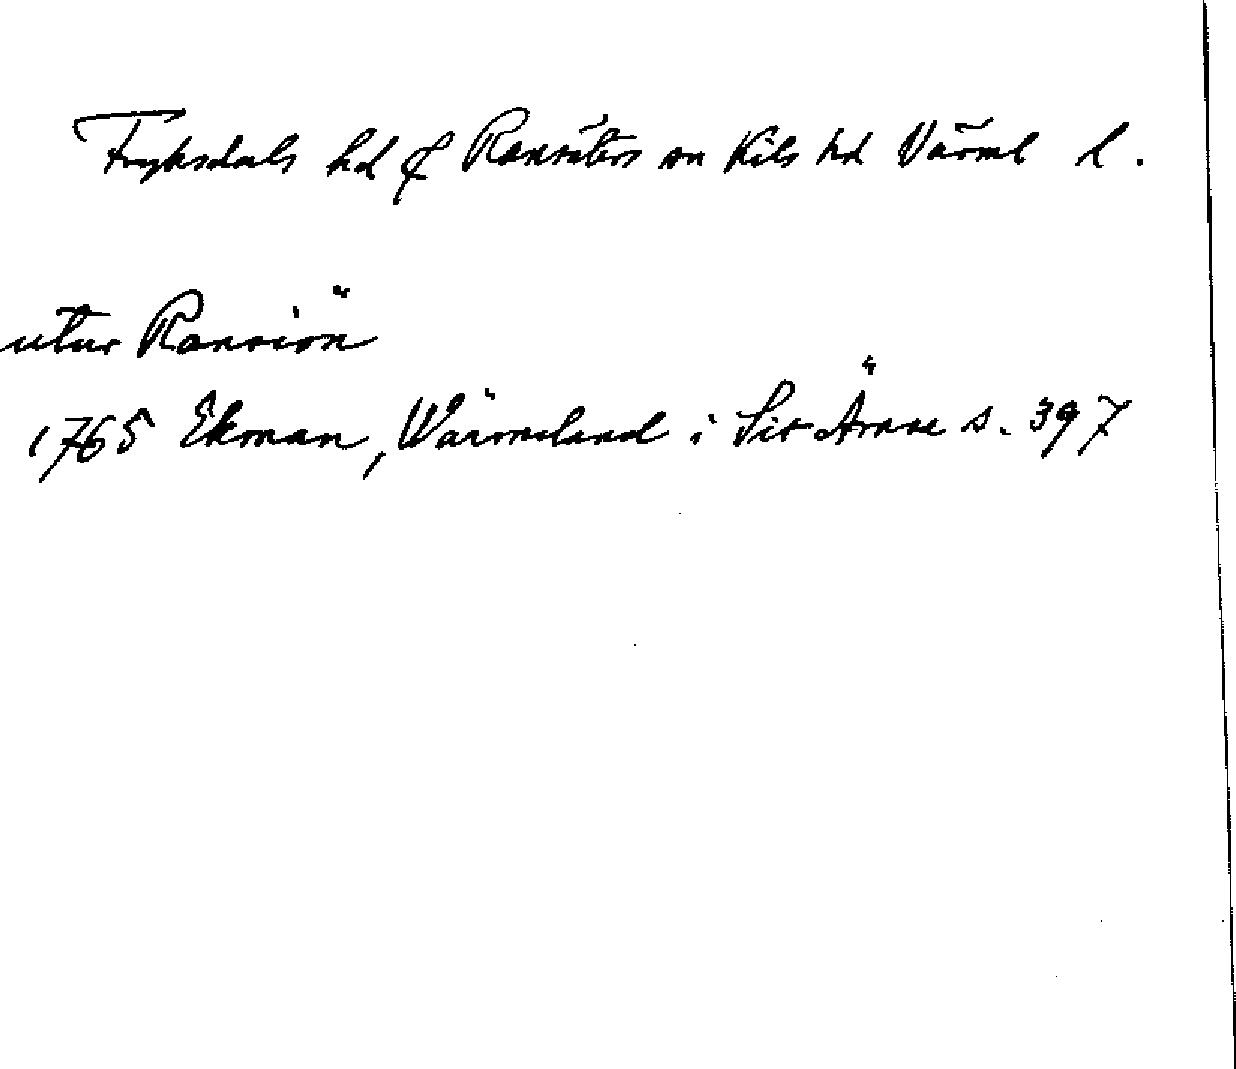 Fryksdals hd & Ransäters sn Kils hd Värml l.
utur Ransiön
1765 Ekman, Wärmeland i Sit Ämne s. 397